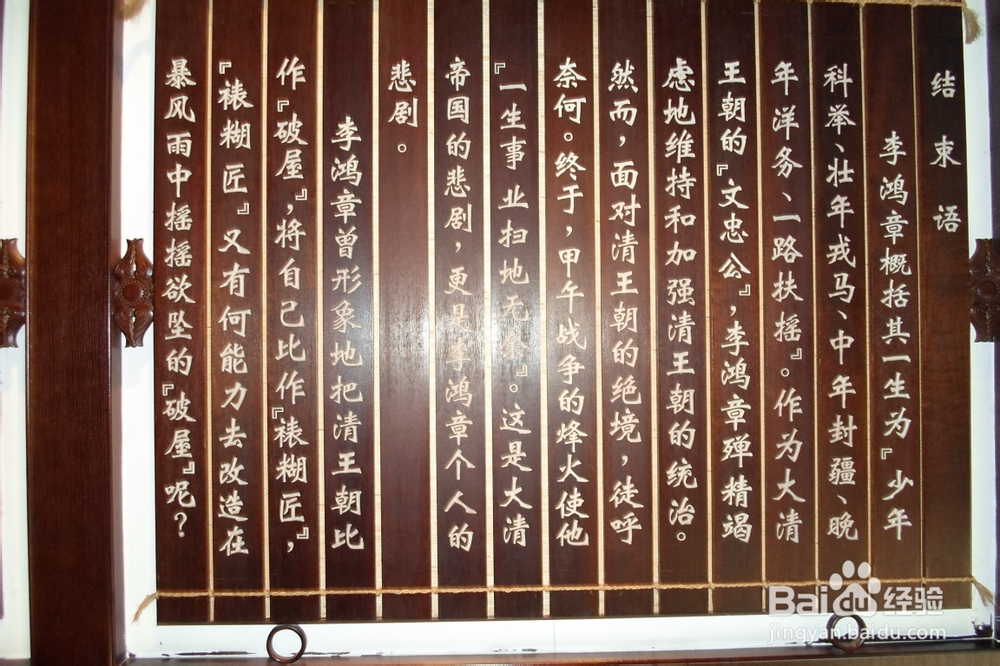 结束语
李鸿章概括其一生为『少年
科举、壮年戎马、中年封疆、晚
年洋务、一路扶摇』。作为大清
王朝的『文忠公』，李鸿章殚精竭
虑地维持和加强清王朝的统治。
然而，面对清王朝的绝境，徒呼
奈何。终于，甲午战争的烽火使他
『一生事业扫地无余』。这是大清
帝国的悲剧，更是李鸿章个人的
悲剧。
李鸿章曾形象地把清王朝比
作『破屋』，将自己比作『裱糊匠』，
『裱糊匠』又有何能力去改造在
暴风雨中摇摇欲坠的『破屋』呢？
Bai du 经验
jingyan.baidu.com